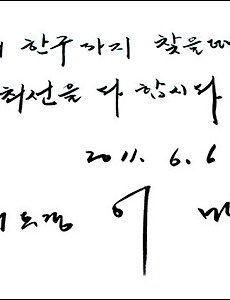 한구까지 찾을때
최선을 다 합시다
2011. 6. 6
이